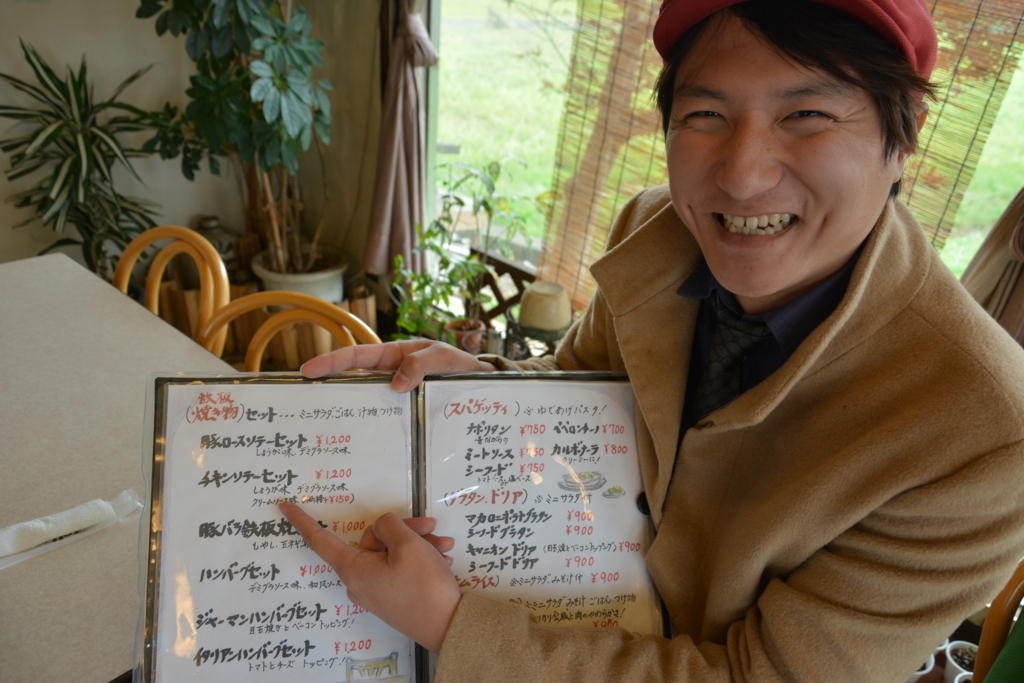 (鉄板焼き物)セット・・・ミニサラダ、ごはん、汁物、つけ物
豚ロースソテーセット ¥1,200
しょうが味、デミグラソース味
チキンソテーセット ¥1,200
しょうが味、デミグラソース味
クリームソース味 +¥150)
豚バラ鉄板焼 ¥1000
もやし、玉ネギ
ハンバーグセット ¥1,000
デミグラソース味、和風ソース味
ジャーマンハンバーグセット ¥1,2
目玉焼きとベーコントッピング!
イタリアンハンバーグセット ¥1,200
トマトとチーズ トッピング!!
(スパゲッティ) ※ゆであげパスタ!
ナポリタン ¥750 ペペロンチーノ ¥700
昔ながらの
ミートソース ¥750 カルボナーラ ¥800
クリーミーに!
シーフード ¥750
トマトソース、塩ベース
(グラタン、ドリア) ※ミニサラダ付
マカロニポテトグラタン ¥900
シーフードグラタン ¥900
キャニオンドリア (目玉焼とベーコントッピング) ¥900
シーフードドリア ¥900
ムライス) ※ミニサラダ、みそ汁付 ¥900
※ミニサラダ、みそ汁、ごはん、つけ物